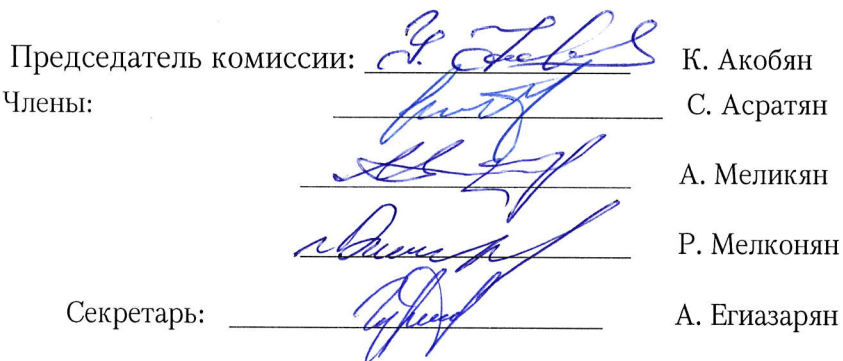 Председатель комиссии: К. Акобян
Члены: С. Асратян
А. Меликян
Р. Мелконян
Секретарь: А. Егиазарян